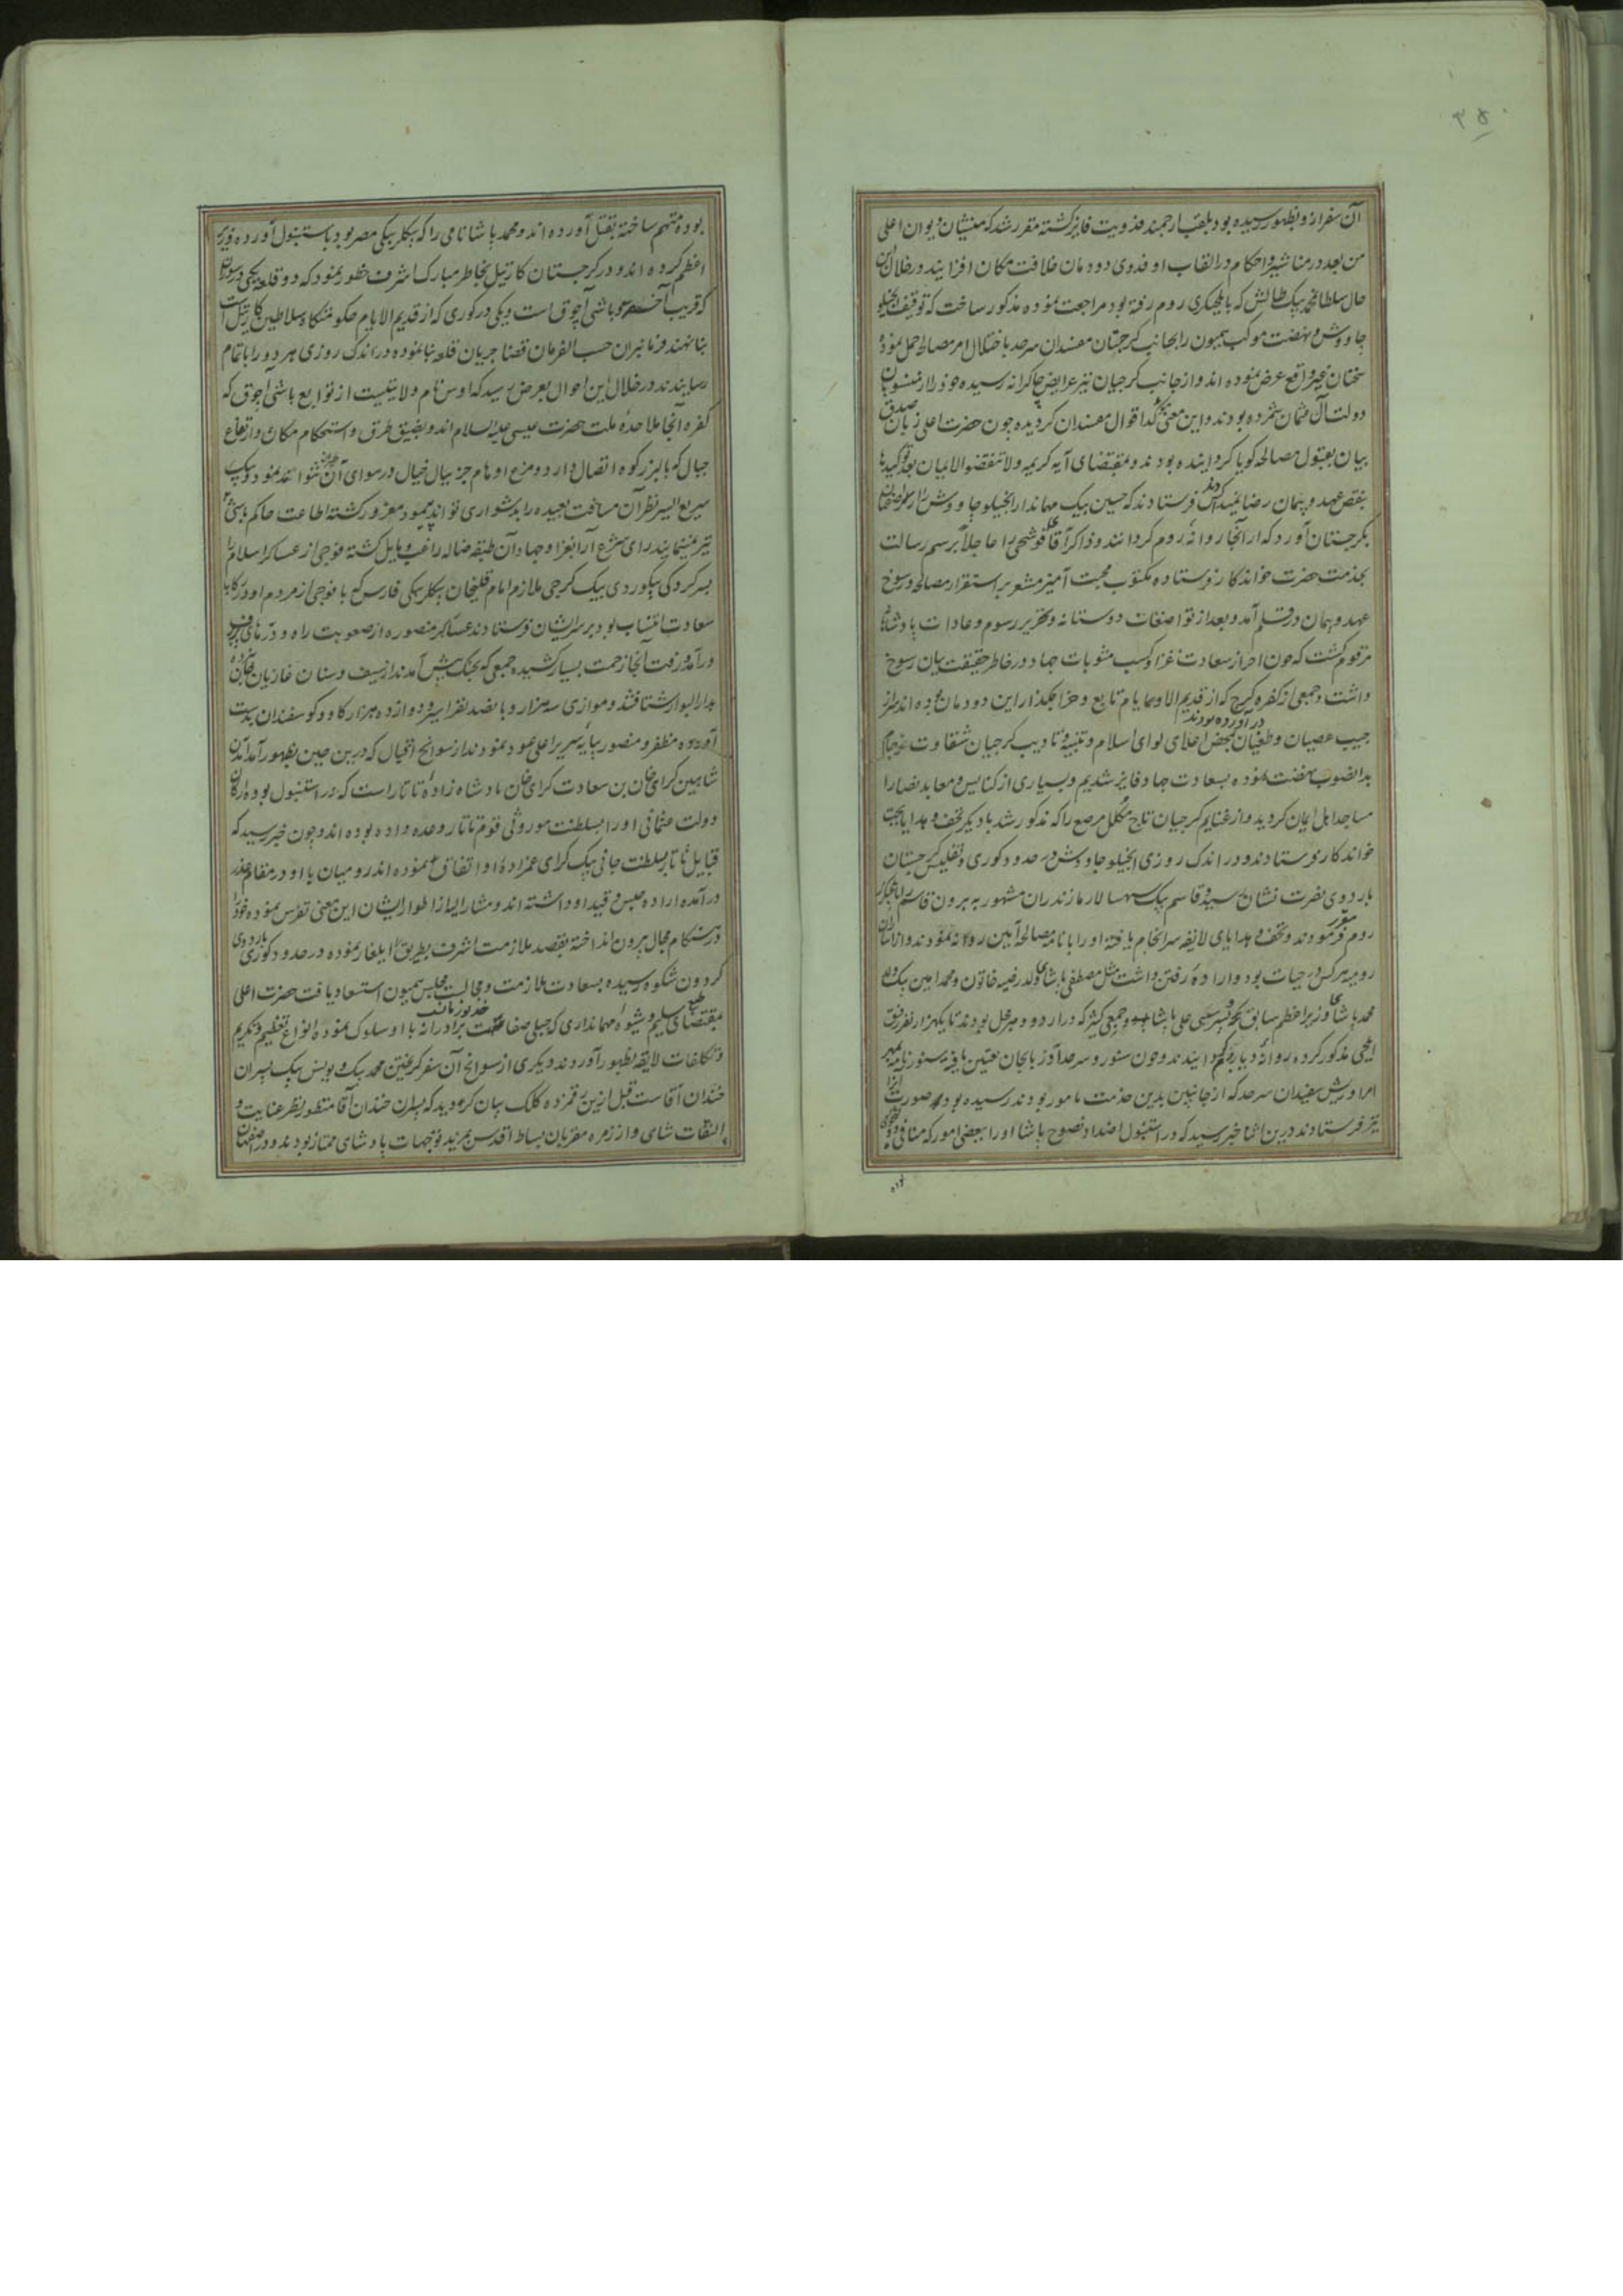 ۳۵۰
آن سفر ازو بظهور رسیده بود بلقب ارجمند فدویت فایز گشته مقرر شد که منشیان دیوان اعلی
من بعد در مناشیر و احکام در القاب او فدوی دودمان خلافت مکان افزایند و در خلال این
حال سلطان محمد بیک طالش که بایلچیگری روم رفته بود مراجعت نموده مذکور ساخت که توقیف اینجیلو
چاووش و نهضت موکب همیون را بجانب گرجستان مفسدان سرحد باختلال امر مصالحه حمل نموده
سخنان غیر واقع عرض نموده‌اند و از جانب گرجیان نیز عرایض چاکرانه رسیده خود را از منسوبان
دولت آل عثمان شمرده بودند و این معنی مؤکد اقوال مفسدان گردیده چون حضرت اعلی زبان صدق
بیان بقبول مصالحه گویا گردانیده بودند و بمقتضای آیه کریمه ولا تنقضوا الایمان بعد توکیدها
بنقض عهد و پیمان رضا نمیدادند کس فرستادند که حسین بیک مهماندار اینجیلو چاووش را از اصفهان
بگرجستان آورد که از آنجا روانه روم گردانند و ذاکر آقا قوشچی را عاجلاً برسم رسالت
بخدمت حضرت خواندگار فرستاده مکتوب محبت آمیز مشعر بر استقرار مصالحه و رسوخ
عهد و پیمان در قلم آمد و بعد از تواضعات دوستانه و تحریر رسوم و عادات پادشاهانه
مرقوم گشت که چون احراز سعادت غزا و کسب مثوبات جهاد در خاطر حقیقت بیان رسوخ
داشت و جمعی از کفره گرج که از قدیم الاوعیا یام تابع و خراجگذار این دودمان بوده‌اند سر از
جیب عصیان و طغیان درآورده بودند محض اعلای لوای اسلام و تنبیه و تادیب گرجیان شقاوت فرجام
بدانصوب نهضت نموده بسعادت جهاد فایز شدیم و بسیاری از کنایس و معابد نصارا
مساجد اهل ایمان گردید و از غنایم گرجیان تاج مکلل مرصع را که مذکور شد با دیگر تحف و هدایا بجهت
خواندگار فرستادند و در اندک روزی اینجیلو چاووش در حدود کوری و تفلیس گرجستان
باردوی نصرت نشان رسید و قاسم بیک سپهسالار مازندران مشهور به برون قاسم را بایلچیگری
روم مقرر فرمودند و تحف و هدایای لایقه سرانجام یافته او را با نامه مصالحه آیین روانه نمودند و از اسیران
رومیه هر کس در حیات بود و اراده رفتن داشت مثل مصطفی پاشای ولد رضیه خاتون و محمد امین بیک ولد
محمد پاشای وزیر اعظم سابق و نبیسی علی پاشا و جمعی کثیر که در اردو و مرخل بودند تا یکهزار نفر رفیق
ایلچی مذکور کرده روانه دیار روم گردانیدند و چون سنور و سرحد آذربایجان تعیین یافته سنور نامه بمهر
امرا و ریش سفیدان سرحد که از جانبین بدین خدمت مامور بودند رسیده بود صورت آنرا
نیز فرستادند درین اثنا خبر رسید که در استنبول اضداد نصوح پاشا او را ببعضی امور که منافی
بوده
بوده متهم ساخته بقتل آورده‌اند و محمد پاشا نامی را که بیگلربیگی مصر بود باستنبول آورده وزیر
اعظم کرده‌اند و در گرجستان کارتیل بخاطر مبارک اشرف خطور نمود که دو قلعه یکی در سوران
که قریب بآخسقه و باشی آچوق است و یکی در کوری که از قدیم الایام حکومتگاه سلاطین کارتیل است
بنا نهند فرمانبران حسب الفرمان قضا جریان قلعه بنا نموده در اندک روزی هر دو را باتمام
رسانیدند در خلال این احوال بعرض رسید که اوس نام ولایتیست از توابع باشی آچوق که
کفره آنجا ملاحده ملت حضرت عیسی علیه السلام‌اند و بضیق طرق و استحکام مکان و ارتفاع
جبال که بالبرز کوه اتصال دارد و مرغ اوهام جز ببال خیال در سوای آن طیران نتواند نمود و پیک
سریع السیر نظر آن مسافت بعیده را بدشواری تواند پیمود مغرور گشته اطاعت حاکم باشی آچوق
نیز نمینمایند رای شرع آرا بغزا و جهاد آن طبقه ضاله راغب و مایل گشته فوجی از عساکر اسلام را
بسرکردگی بیکوردی بیک گرجی ملازم امامقلیخان بیگلربیگی فارس که با فوجی از مردم او در رکاب
سعادت انتساب بود بر سر ایشان فرستادند عساکر منصوره از صعوبت راه و درهای پر برف
و درآمد و رفت آنجا زحمت بسیار کشیده جمعی که بجنگ پیش آمدند از سیف و سنان غازیان
بدارالبوار شتافتند و موازی سه هزار و پانصد نفر اسیر و دوازده هزار گاو و گوسفندان بدست
آورده مظفر و منصور بپایه سریر اعلی عود نمودند از سوانح اقبال که درین حین بظهور آمد آمدن
شاهین گرای خان بن سعادت گرای خان پادشاه زاده تاتار است که در استنبول بوده ارکان
دولت عثمانی او را بسلطنت موروثی قوم تاتار وعده داده بوده‌اند و چون خبر رسید که
قبایل تاتار بسلطنت جانی بیک گرای عمزاده او اتفاق نموده‌اند رومیان با او در مقام غدر
درآمده اراده حبس و قید او داشته‌اند و مشارالیه از اطوار ایشان این معنی تفرس نموده خود را
در هنگام مجال بیرون انداخته بقصد ملازمت اشرف بطریق ایلغار نموده در حدود کوری باردوی
گردون شکوه رسیده بسعادت ملازمت و مجالست مجلس همیون استسعاد یافت حضرت اعلی
بمقتضای طبع سلیم و شیوه مهمانداری که جبلی صفات خدیو زمانست برادرانه با او سلوک نموده انواع تعظیم و تکریم
و تکلفات لایقه بظهور آوردند و دیگری از سوانح آن سفر گرفتن محمد بیک و ویس بیک پسران
خندان آقاست قبل ازین رقمزده کلک بیان گردید که پسران خندان آقا منظور نظر عنایت و
التفات شاهی و از زمره مقربان بساط اقدس بمزید توجهات پادشاهی ممتاز بودند و در اصفهان